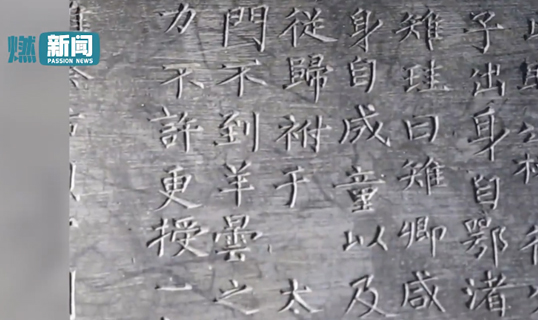 燃新闻
PASSION NEWS
子出身自鄂渚
雉珪曰雉卿咸
身自成童以及
從歸祔于太
門不到羊曇之
力不許更授一